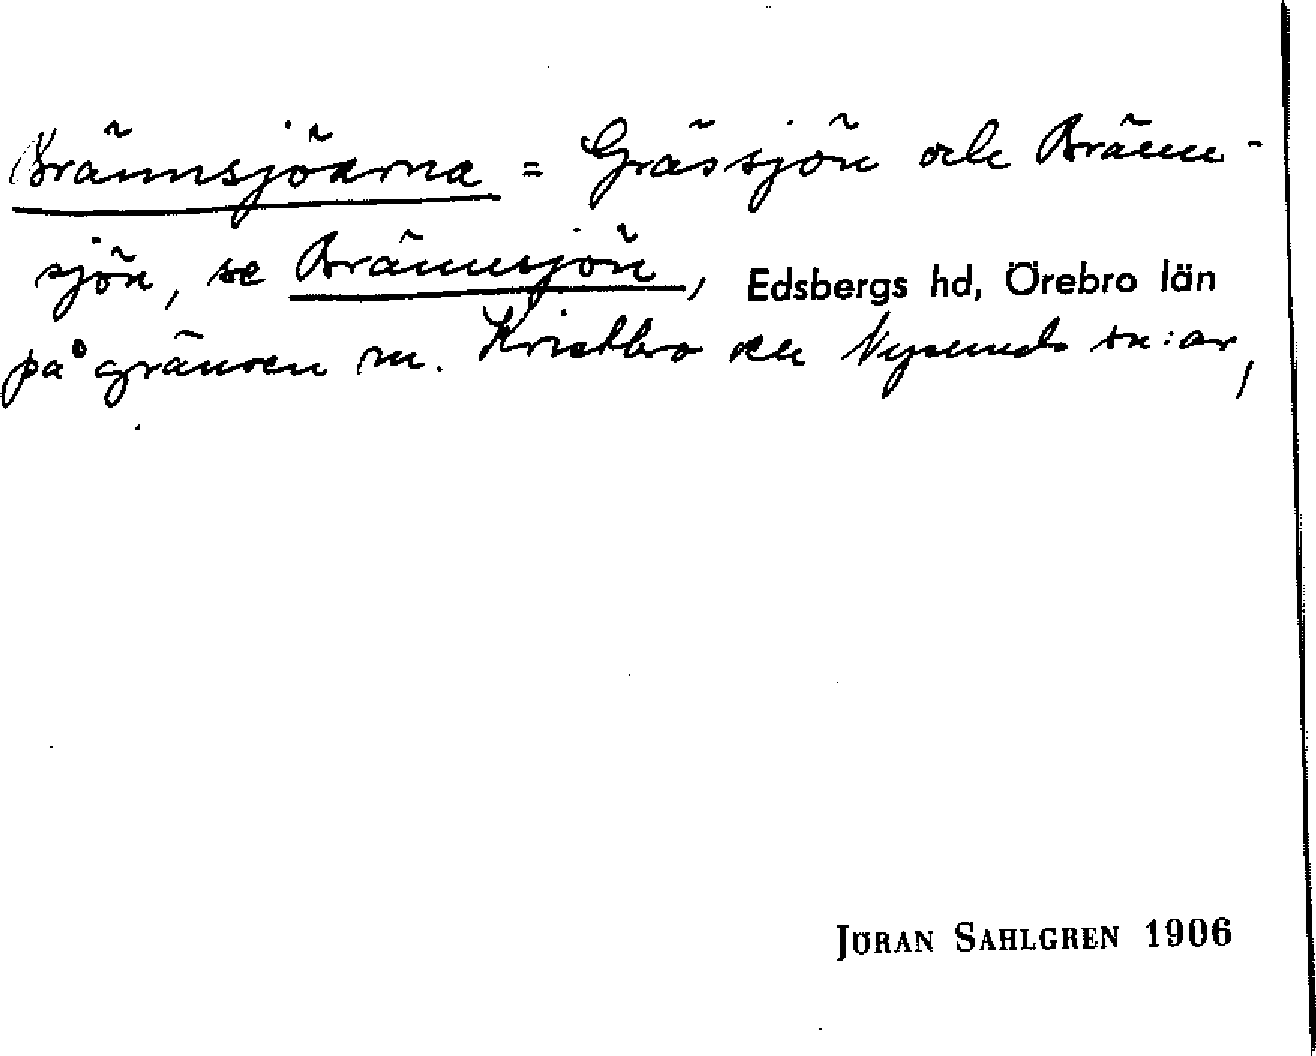 Brännsjöarna = Grässjön och Bränn-
sjön, se Brännsjön, Edsbergs hd, Örebro län
på gränsen m. Kvistbro och Nysunds sn:ar,
JÖRAN SAHLGREN 1906